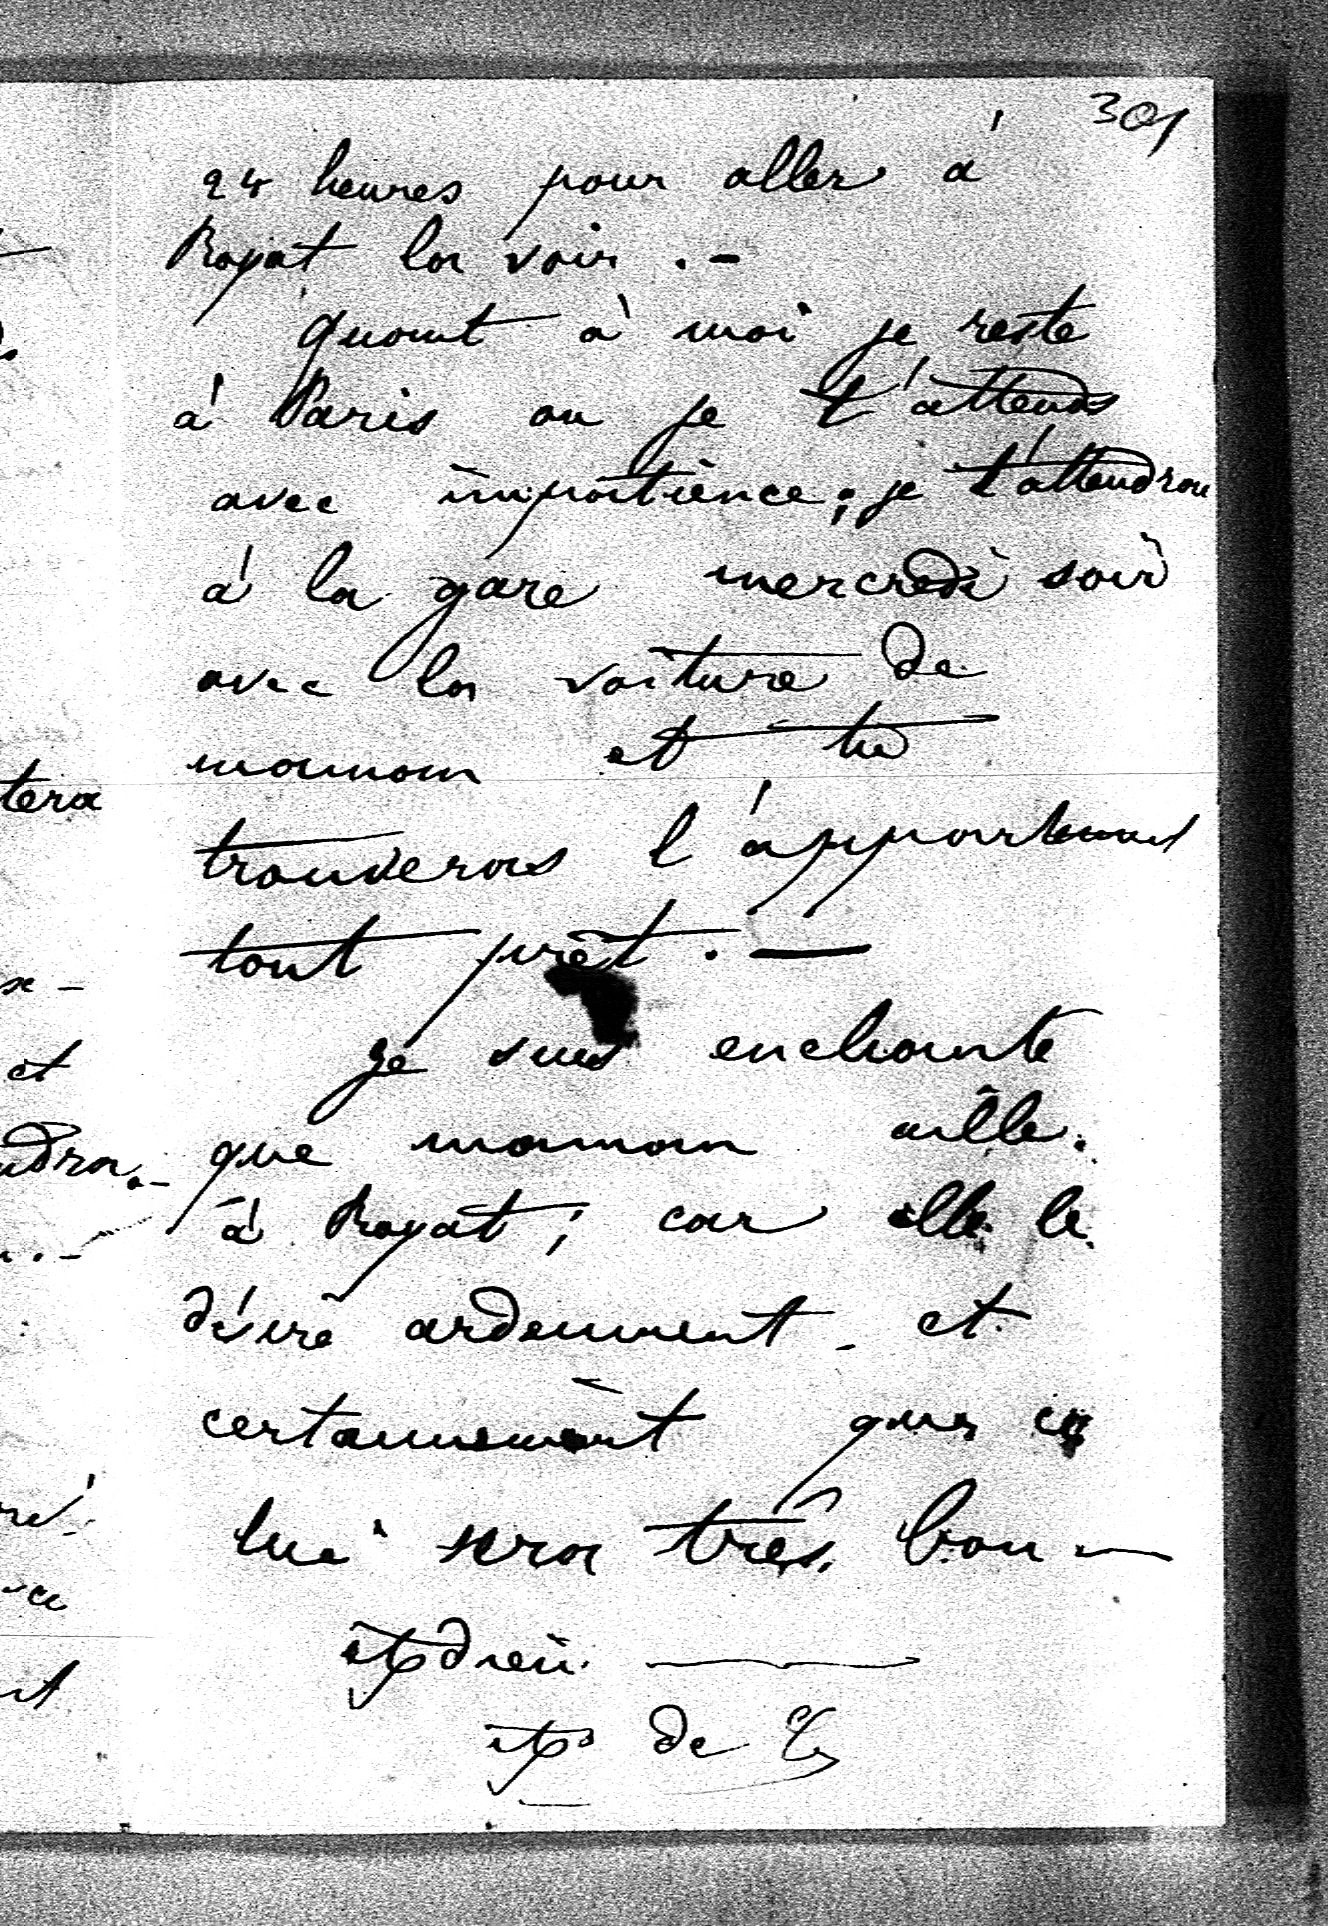 301
24 heures pour aller à
Royat la voir . -
quant à moi je reste
à Paris ou je t'attends
avec impatience ; je t'attendrai
à la gare mercredi soir
avec la voiture de
maman et tu
trouveras l'appartement
tout prêt . —
Je suis enchanté
que maman aille
à Royat ; car elle le
désire ardemment - et
certainement que ça
lui sera très bon —
de
tera
et